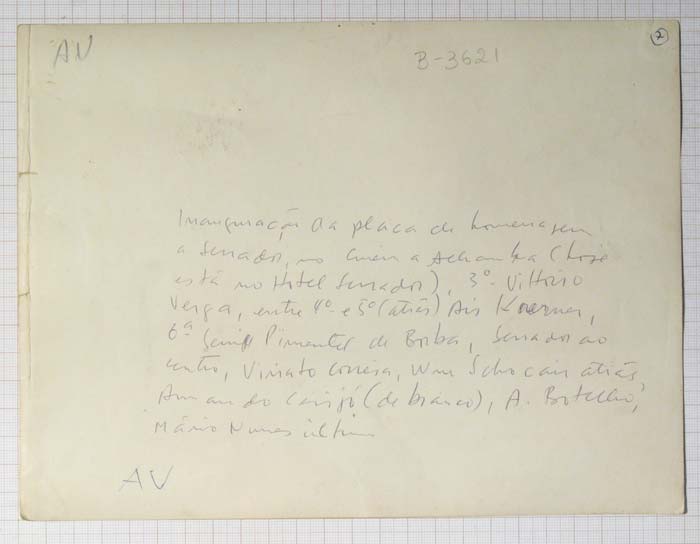 AV
B-3621
2
Inauguração da placa de homenagem
a Serrador, no Cinema Alhambra (hoje
está no Hotel Serrador), 3º Vittorio
Verga, entre 4º e 5º (atrás) Ais Koerner,
6ª Pimentel de Borba, Serrador ao
centro, Viriato Correia, Wm Schocair atrás,
Armando Carijó (de branco), A. Botelho,
Mário Nunes último
AV